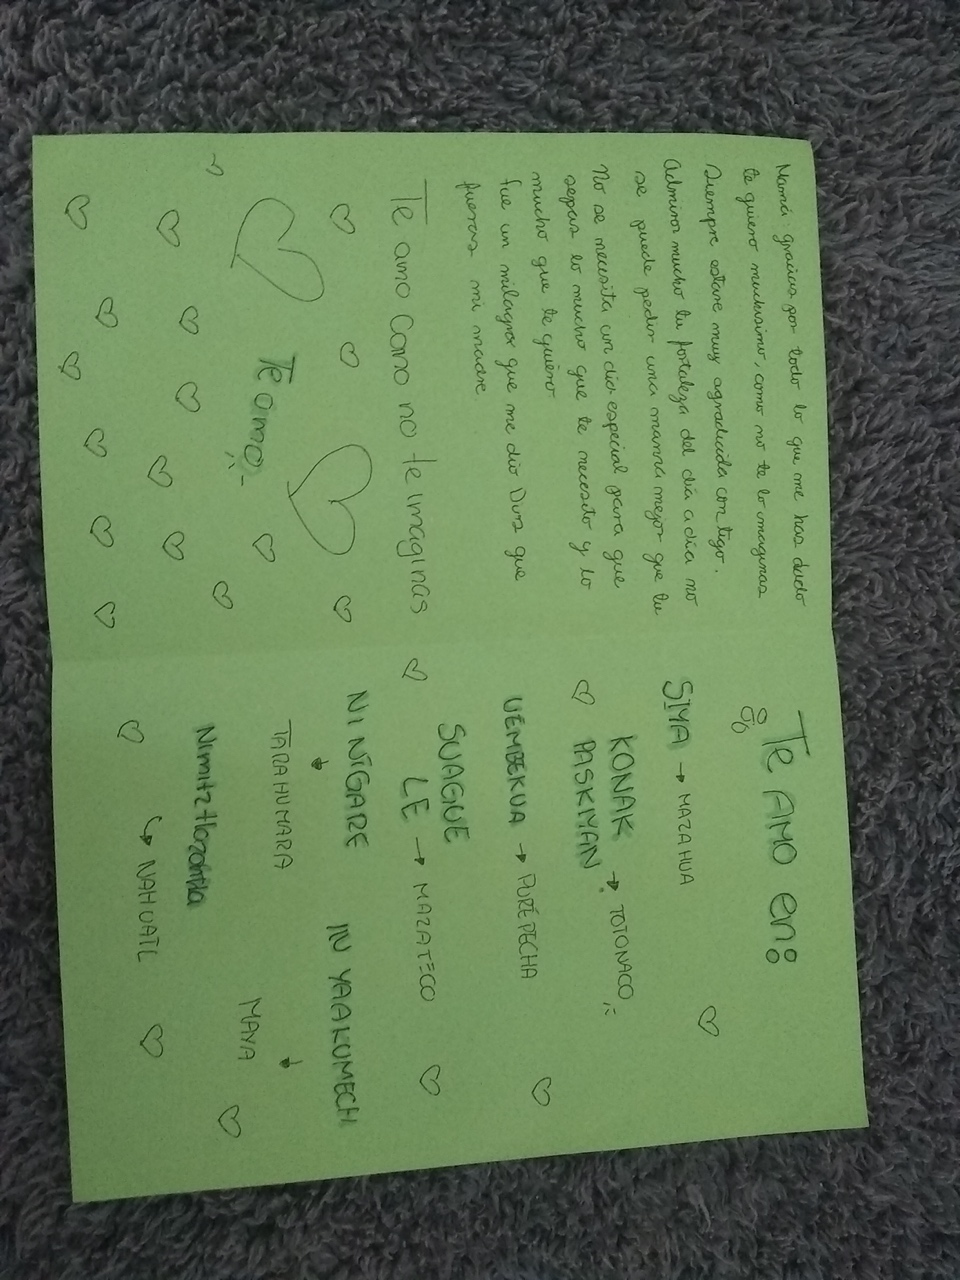 Mamá: gracias por todo lo que me has dado
te quiero muchisimo, como no te lo imaginas
Siempre estare muy agradecida contigo.
Admiro mucho tu fortaleza del día a día no
se puede pedir una mamá mejor que tu
No se necesita un dia especial para que
sepas lo mucho que te necesito y lo
mucho que te quiero
fue un milagro que me dio Dios que
fueras mi madre
Te amo como no te imaginas
Te amo
Te AMO en:
SIYA → MAZAHUA
KONAK
PASKIYAN → TOTONACO
UEMBEKUA → PURÉPECHA
SUAGUE
LE → MAZATECO
NI NIGARE
TARAHUMARA
IN YAAKUMECH
MAYA
Nimitztlazohtla
NAHUATL